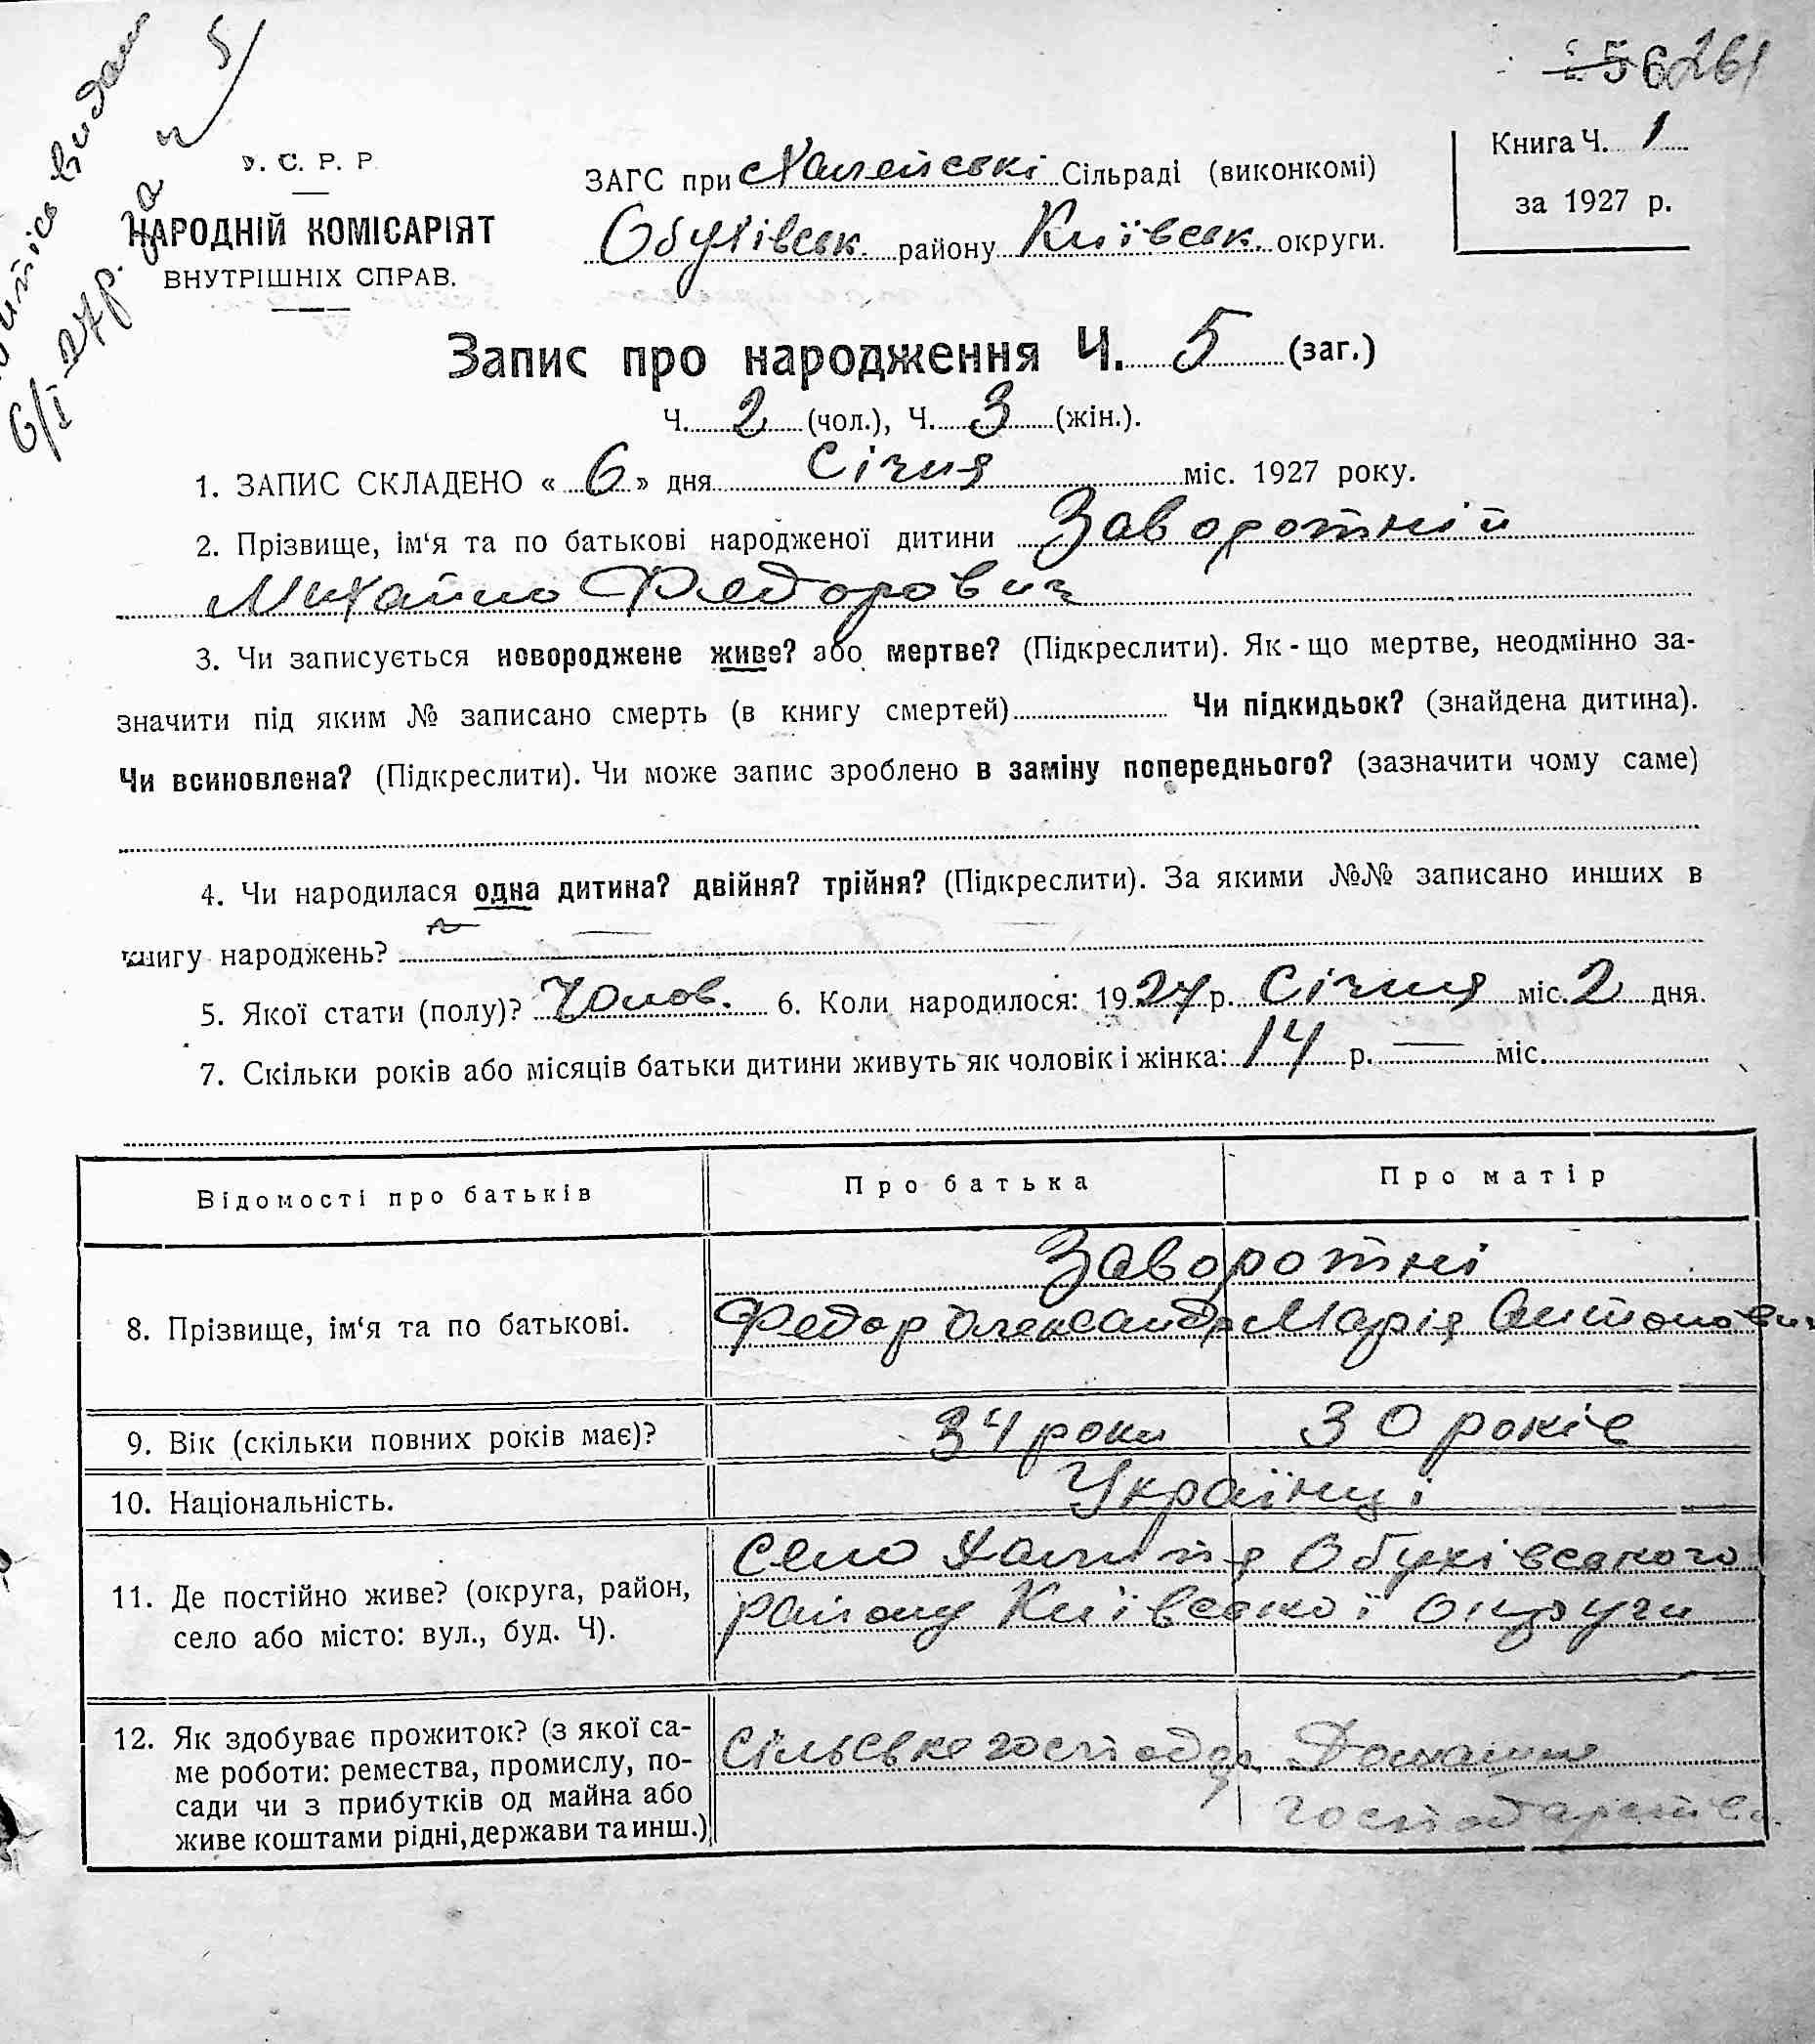 56 261
Витпісь видан
6/I 27р. за ч 5
У. С. Р. Р.
НАРОДНІЙ КОМІСАРІЯТ
ВНУТРІШНІХ СПРАВ.
ЗАГС при Халепські Сільраді (виконкомі)
Обухівськ. району Київськ. округи.
Книга Ч. 1
за 1927 р.
Запис про народження Ч. 5 (заг.)
Ч. 2 (чол.), Ч. 3 (жін.).
1. ЗАПИС СКЛАДЕНО « 6 » дня Січня міс. 1927 року.
2. Прізвище, ім‘я та по батькові народженої дитини Заворотній
Михайло Федорович
3. Чи записується новороджене живе? або мертве? (Підкреслити). Як - що мертве, неодмінно за-
значити під яким № записано смерть (в книгу смертей) Чи підкидьок? (знайдена дитина).
Чи всиновлена? (Підкреслити). Чи може запис зроблено в заміну попереднього? (зазначити чому саме)
4. Чи народилася одна дитина? двійня? трійня? (Підкреслити). За якими №№ записано инших в
книгу народжень?
5. Якої стати (полу)? Чолов. 6. Коли народилося: 1927 р. Січня міс. 2 дня.
7. Скільки років або місяців батьки дитини живуть як чоловік і жінка: 14 р. — міс.
Відомості про батьків Про батька Про матір
8. Прізвище, ім‘я та по батькові. Заворотні
Федор Олександр Марія Антонович
9. Вік (скільки повних років має)? 34 роки 30 років
10. Національність. Українці
11. Де постійно живе? (округа, район,
село або місто: вул., буд. Ч).
село Халепія Обухівського
району Київської округи
12. Як здобуває прожиток? (з якої са-
ме роботи: ремества, промислу, по-
сади чи з прибутків од майна або
живе коштами рідні, держави та инш.)
Сільське господар Домашнє
господарство